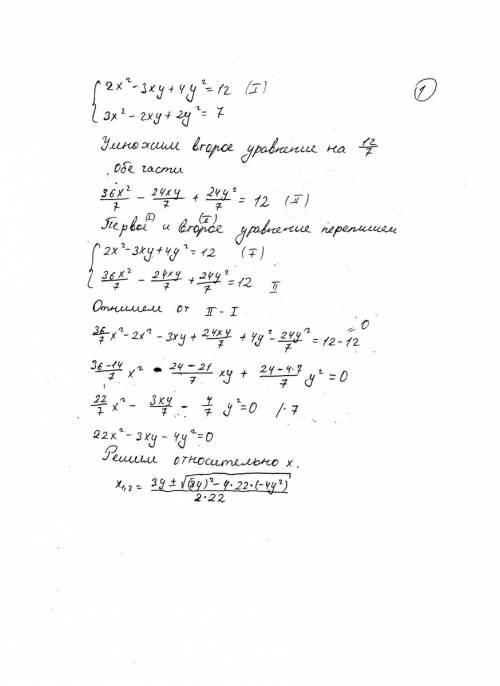 1
{ 2x² - 3xy + 4y² = 12 (I)
3x² - 2xy + 2y² = 7
Умножим второе уравнение на 12/7
Обе части
36x²/7 - 24xy/7 + 24y²/7 = 12 (II)
Первое (I) и второе (II) уравнение перепишем
{ 2x² - 3xy + 4y² = 12 (I)
36x²/7 - 24xy/7 + 24y²/7 = 12 II
Отнимем от II - I
36/7 x² - 2x² - 3xy + 24xy/7 + 4y² - 24y²/7 = 12 - 12 = 0
36-14/7 x² - 24-21/7 xy + 24-4·7/7 y² = 0
22/7 x² - 3xy/7 - 4/7 y² = 0 /·7
22x² - 3xy - 4y² = 0
Решим относительно x.
x₁,₂ = 3y ± √(3y)² - 4·22·(-4y²) / 2·22